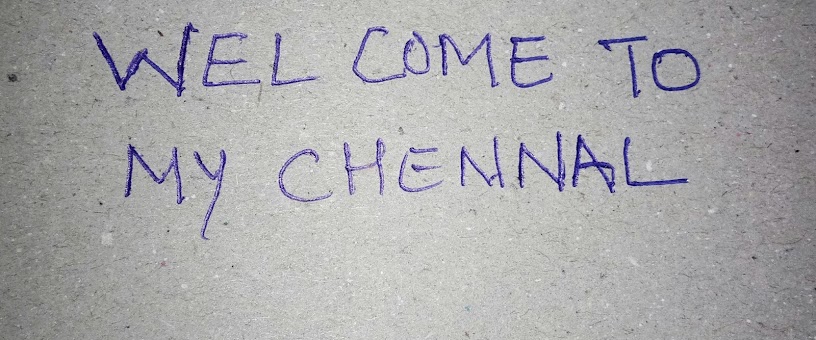 WEL COME TO
MY CHENNAL